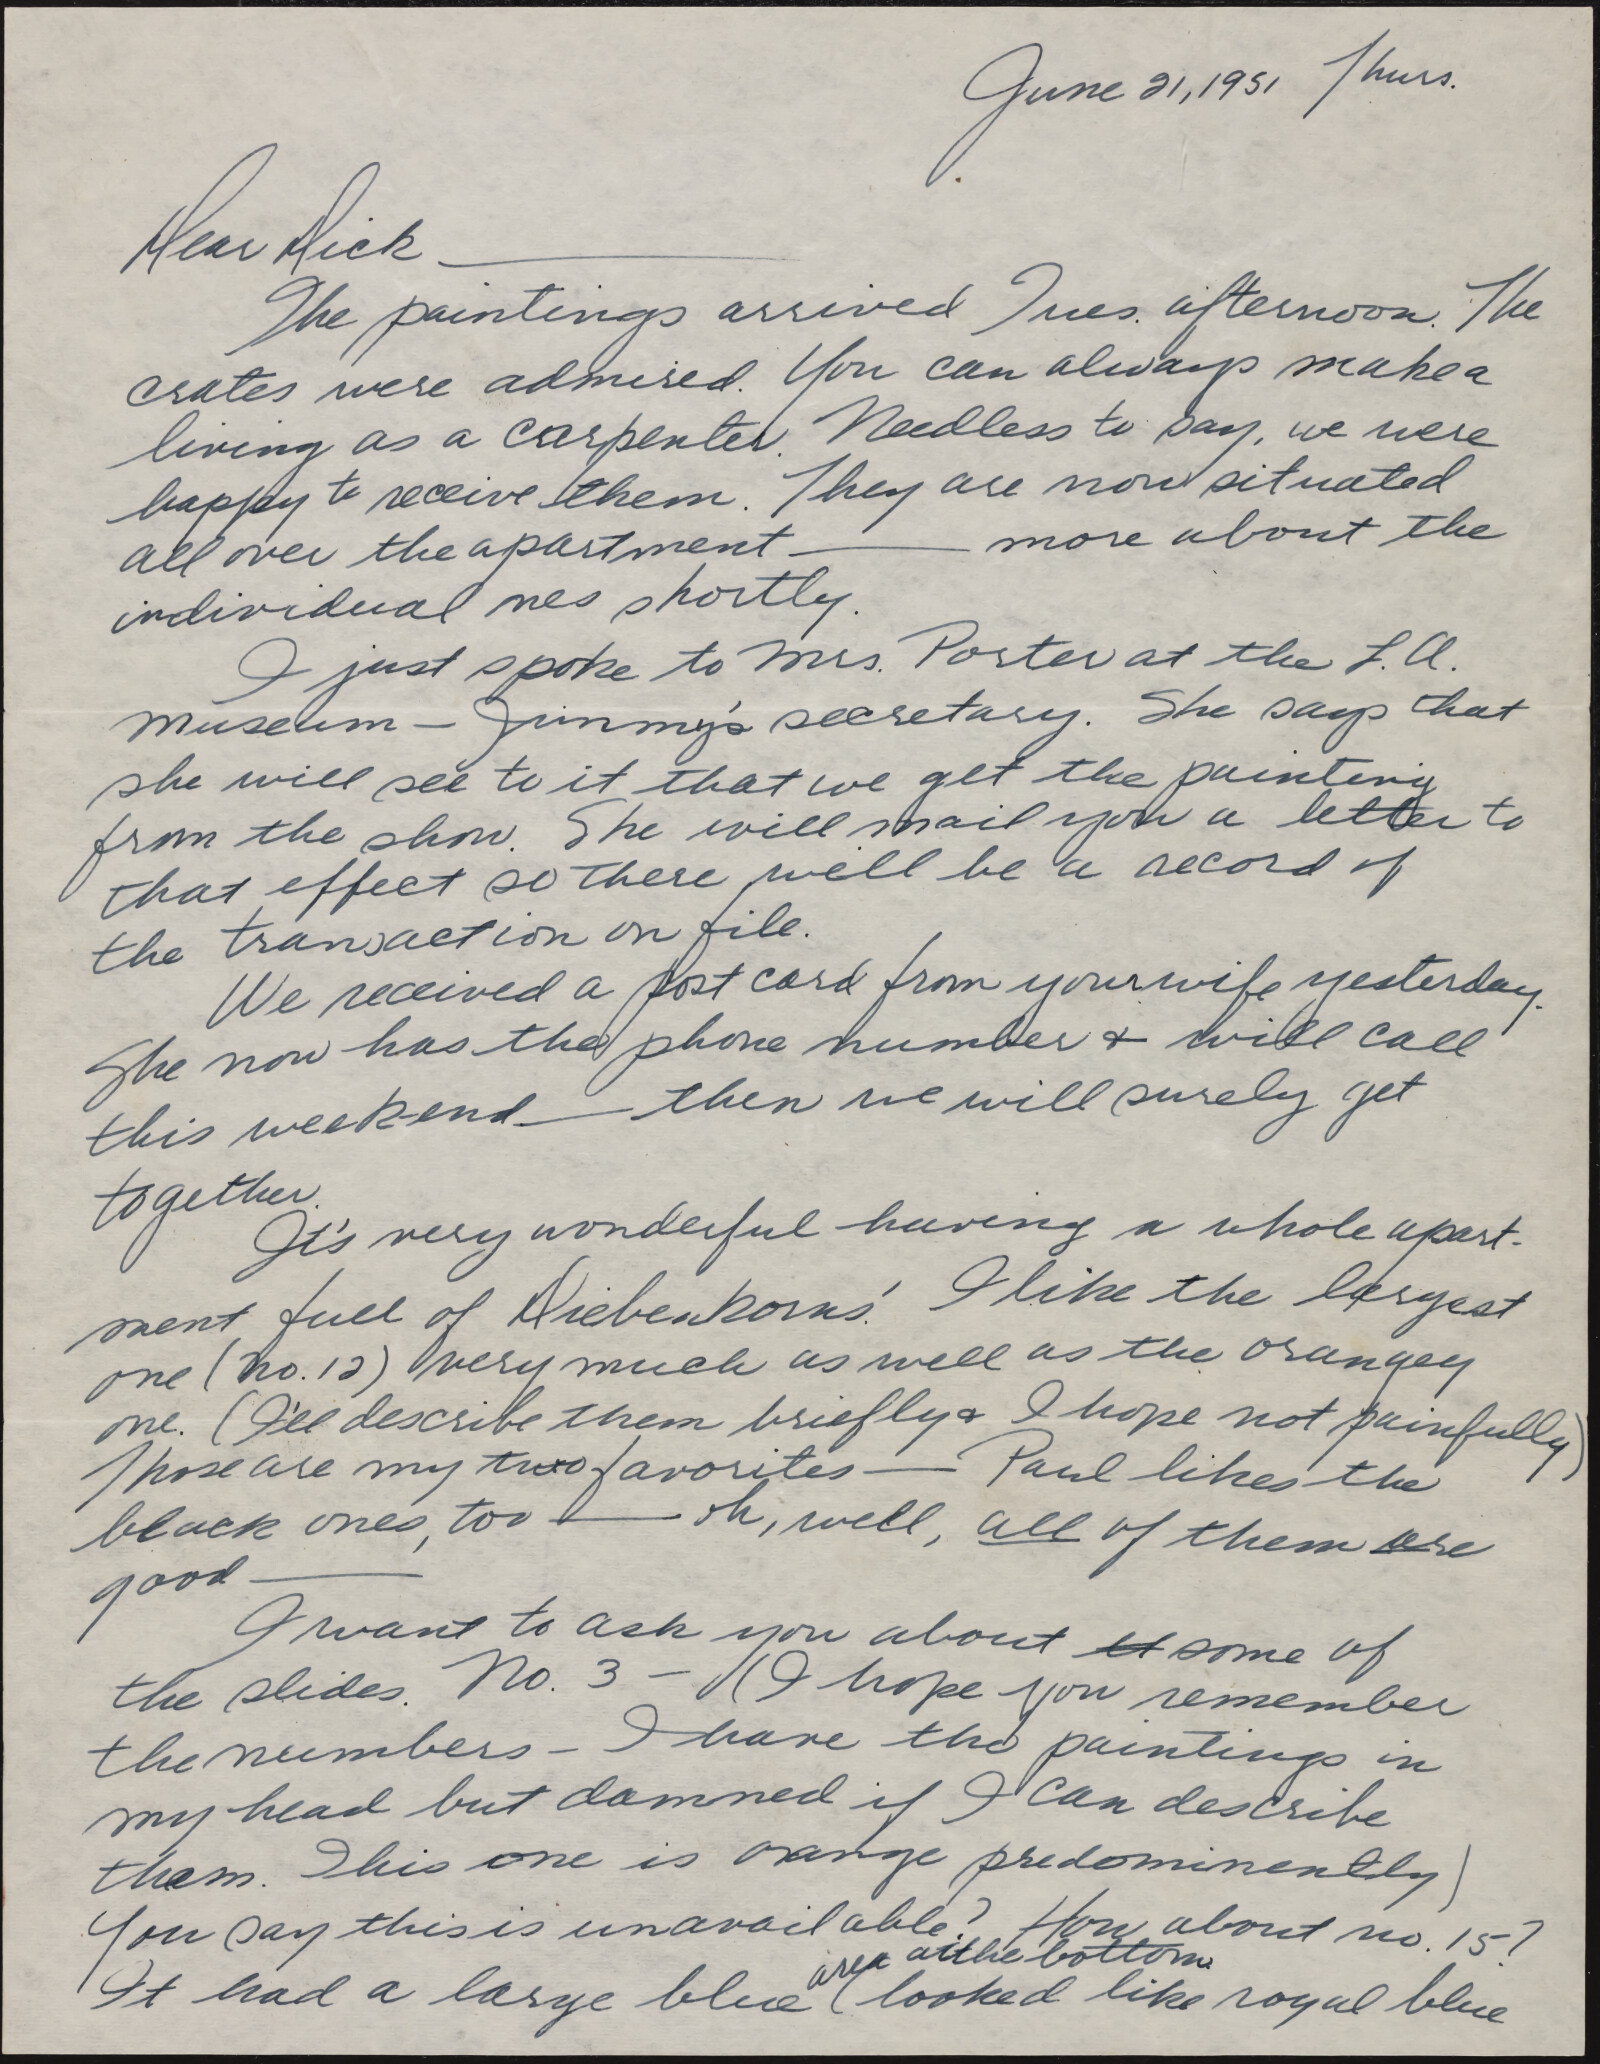 June 21, 1951 Thurs.
Dear Dick —
The paintings arrived Tues. afternoon. The
crates were admired. You can always make a
living as a carpenter. Needless to say, we were
happy to receive them. They are now situated
all over the apartment — more about the
individual nes shortly.
I just spoke to Mrs. Porter at the L.A.
Museum — Jimmy's secretary. She says that
she will see to it that we get the painting
from the show. She will mail you a letter to
that effect so there will be a record of
the transaction on file.
We received a post card from your wife yesterday.
She now has the phone number & will call
this weekend — then we will surely get
together.
It's very wonderful having a whole apart-
ment full of Diebenkorns! I like the largest
one (no. 12) very much as well as the orangey
one. (I'll describe them briefly & I hope not painfully)
Those are my two favorites — Paul likes the
black ones, too — oh, well, all of them are
good —
I want to ask you about some of
the slides. No. 3 – (I hope you remember
the numbers – I have the paintings in
my head but damned if I can describe
them. This one is orange predominently)
You say this is unavailable? How about no. 15?
area at the bottom
It had a large blue (looked like royal blue